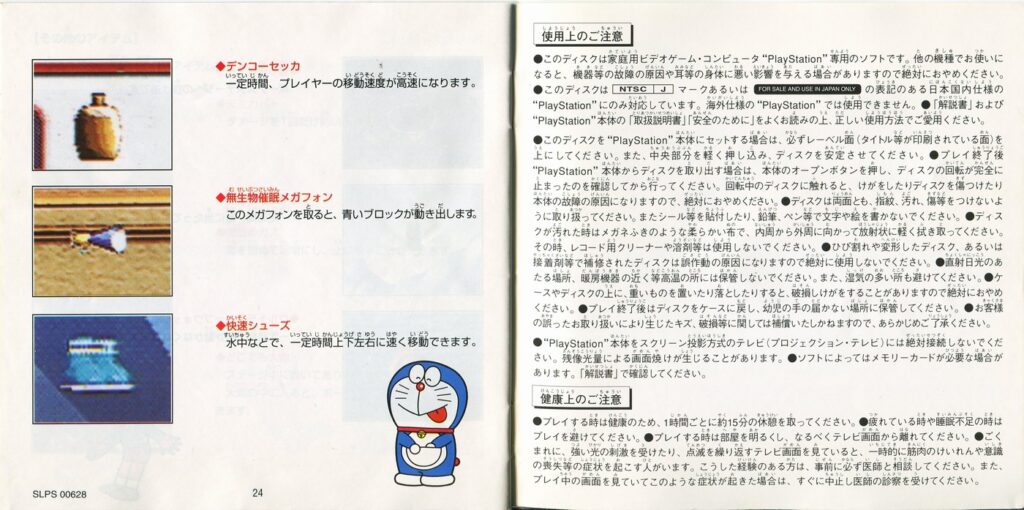 ◆デンコーセッカ
一定時間、プレイヤーの移動速度が高速になります。
◆無生物催眠メガフォン
このメガフォンを取ると、青いブロックが動き出します。
◆快速シューズ
水中などで、一定時間上下左右に速く移動できます。
SLPS 00628
24
使用上のご注意
●このディスクは家庭用ビデオゲーム・コンピュータ“PlayStation”専用のソフトです。他の機種でお使いに
なると、機器等の故障の原因や耳等の身体に悪い影響を与える場合がありますので絶対におやめください。
●このディスクは NTSC J マークあるいは FOR SALE AND USE IN JAPAN ONLY の表記のある日本国内仕様の
“PlayStation”にのみ対応しています。海外仕様の“PlayStation”では使用できません。●「解説書」および
“PlayStation”本体の「取扱説明書」「安全のために」をよくお読みの上、正しい使用方法でご愛用ください。
●このディスクを“PlayStation”本体にセットする場合は、必ずレーベル面(タイトル等が印刷されている面)を
上にしてください。また、中央部分を軽く押し込み、ディスクを安定させてください。●プレイ終了後
“PlayStation”本体からディスクを取り出す場合は、本体のオープンボタンを押し、ディスクの回転が完全に
止まったのを確認してから行ってください。回転中のディスクに触れると、けがをしたりディスクを傷つけたり
本体の故障の原因になりますので、絶対におやめください。●ディスクは両面とも、指紋、汚れ、傷等をつけないよ
うに取り扱ってください。またシール等を貼付したり、鉛筆、ペン等で文字や絵を書かないでください。●ディス
クが汚れた時はメガネふきのような柔らかい布で、内周から外周に向かって放射状に軽く拭き取ってください。
その時、レコード用クリーナーや溶剤等は使用しないでください。●ひび割れや変形したディスク、あるいは
接着剤等で補修されたディスクは誤作動の原因になりますので絶対に使用しないでください。●直射日光のあ
たる場所、暖房機器の近く等高温の所には保管しないでください。また、湿気の多い所も避けてください。●ケ
ースやディスクの上に、重いものを置いたり落としたりすると、破損しけがをすることがありますので絶対におやめ
ください。●プレイ終了後はディスクをケースに戻し、幼児の手の届かない場所に保管してください。●お客様
の誤ったお取り扱いにより生じたキズ、破損等に関しては補償いたしかねますので、あらかじめご了承ください。
●“PlayStation”本体をスクリーン投影方式のテレビ(プロジェクション・テレビ)には絶対接続しないでくだ
さい。残像光量による画面焼けが生じることがあります。●ソフトによってはメモリーカードが必要な場合が
あります。「解説書」で確認してください。
健康上のご注意
●プレイする時は健康のため、1時間ごとに約15分の休憩を取ってください。●疲れている時や睡眠不足の時は
プレイを避けてください。●プレイする時は部屋を明るくし、なるべくテレビ画面から離れてください。●ごく
まれに、強い光の刺激を受けたり、点滅を繰り返すテレビ画面を見ていると、一時的に筋肉のけいれんや意識
の喪失等の症状を起こす人がいます。こうした経験のある方は、事前に必ず医師と相談してください。また、
プレイ中の画面を見ていてこのような症状が起きた場合は、すぐに中止し医師の診察を受けてください。